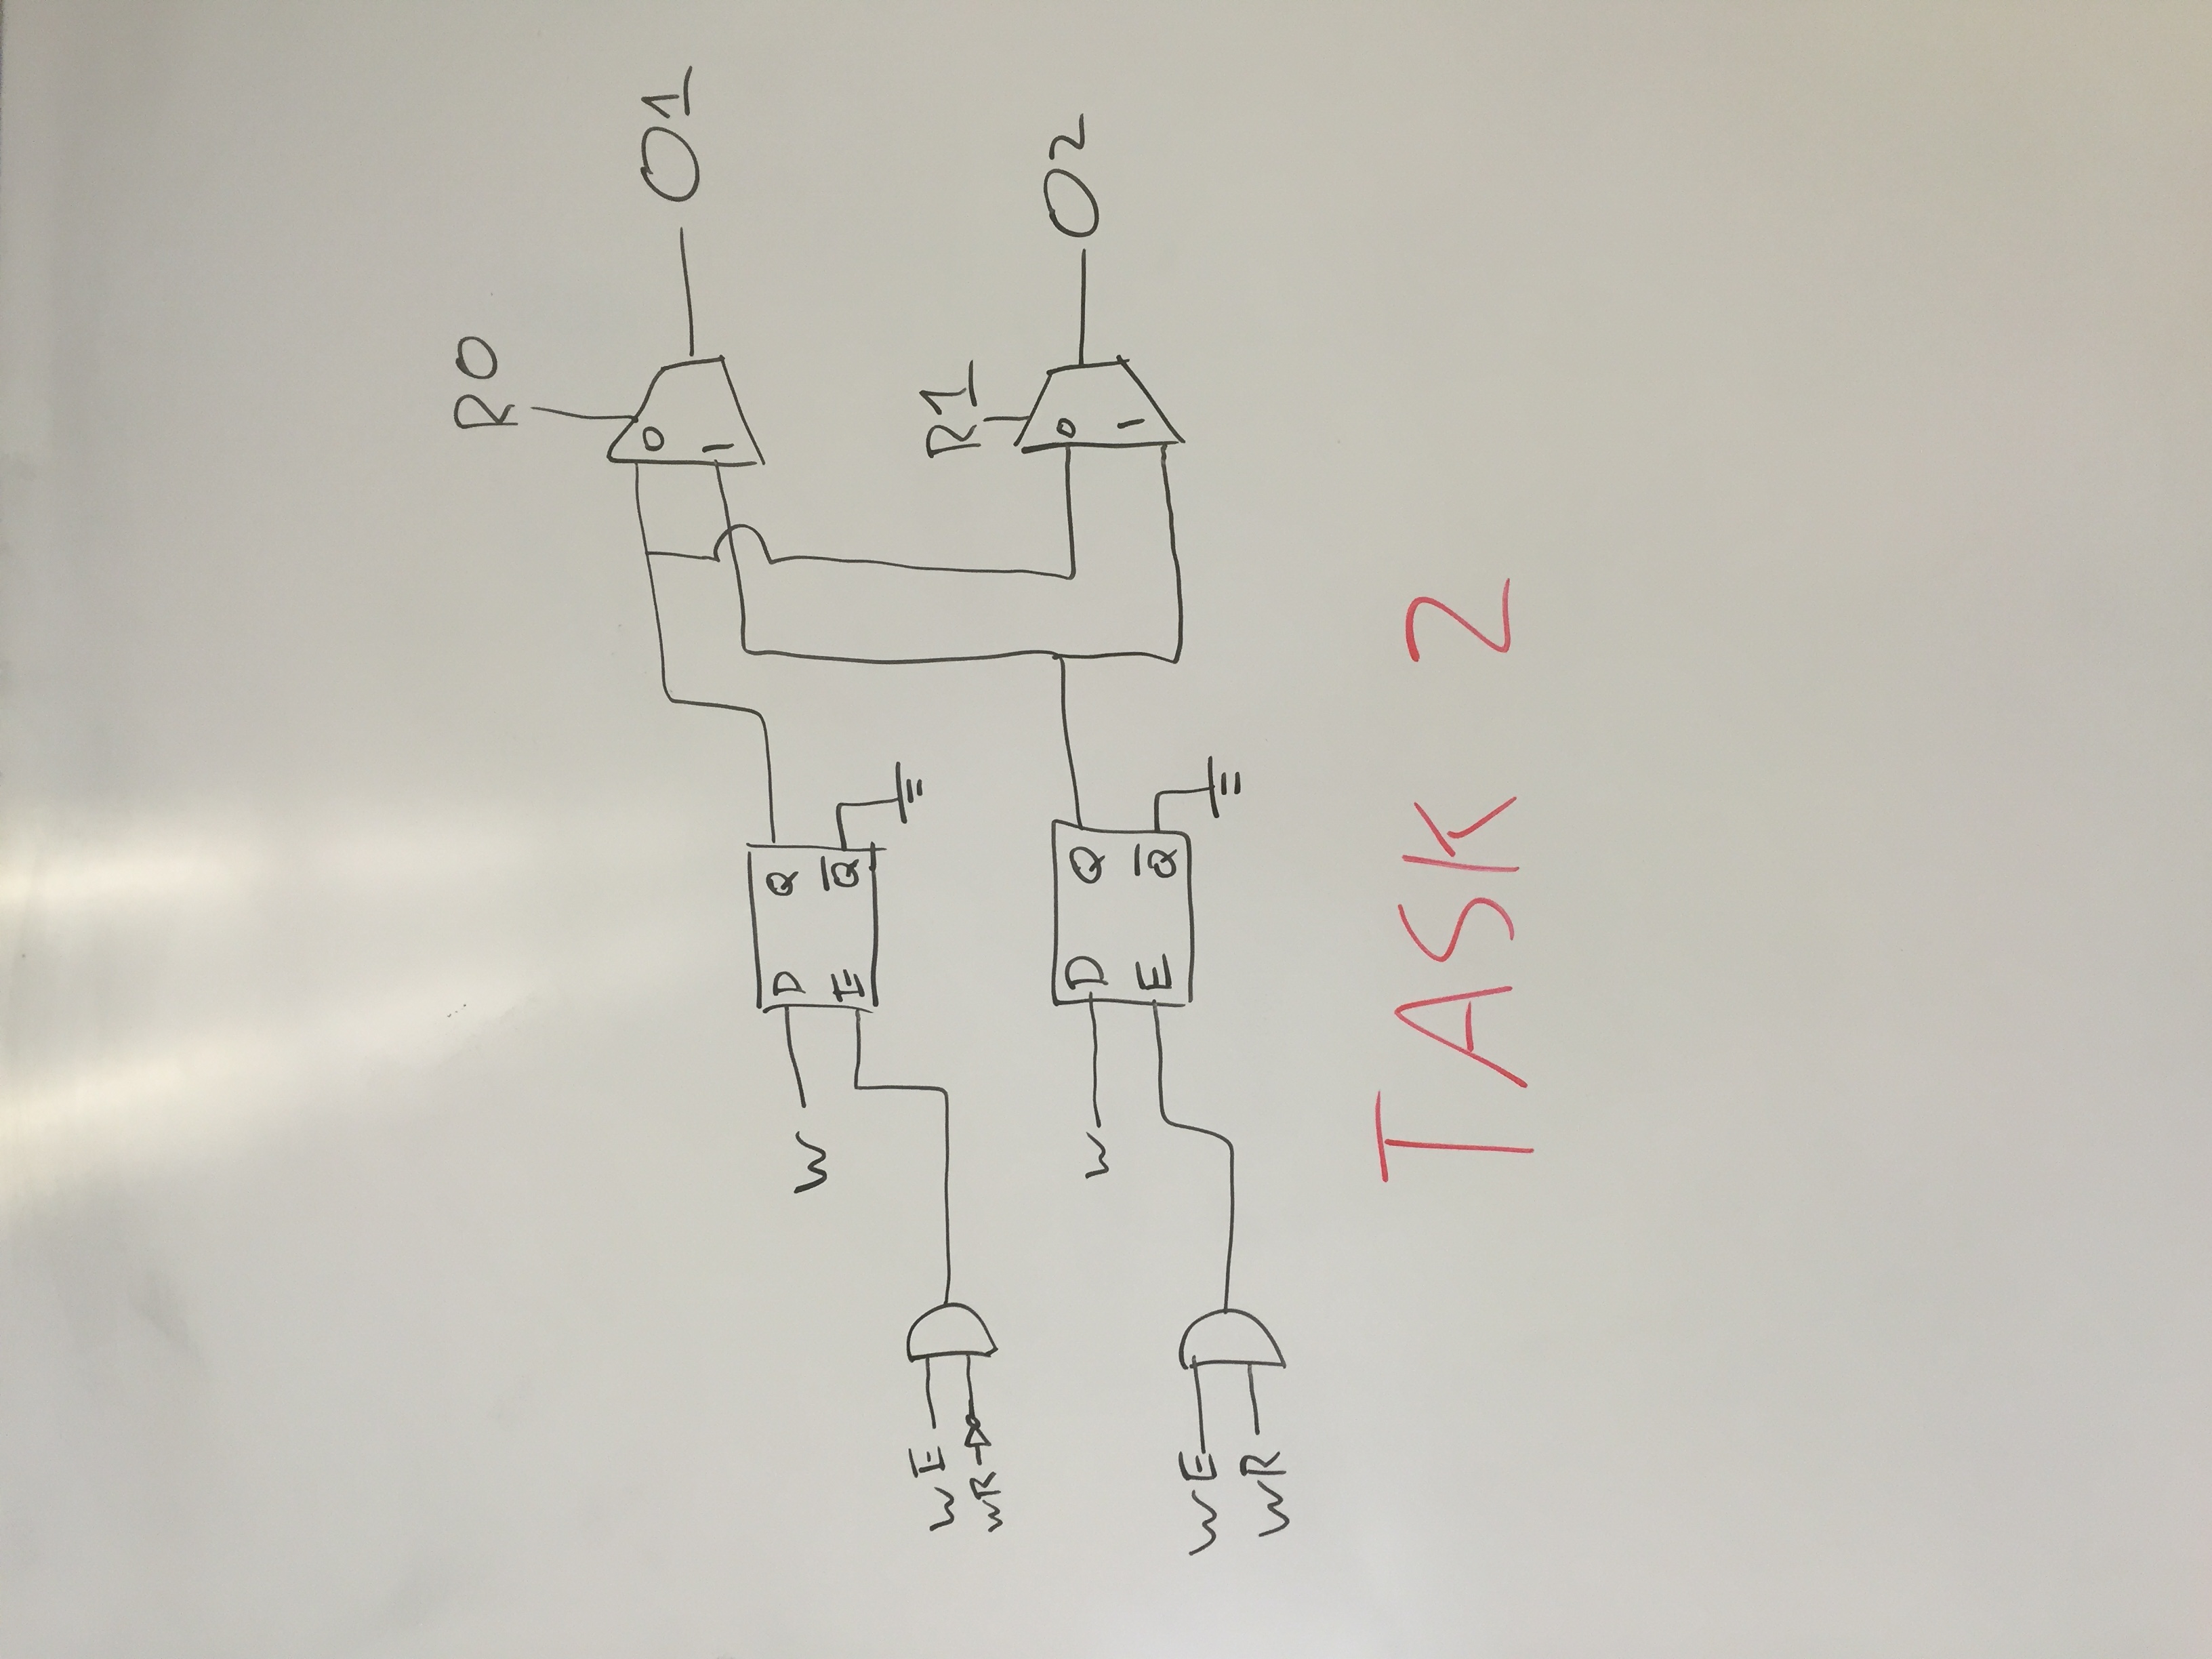 R0
0
1
O1
W
D
Q
E
Q̅
WE
WR
R1
0
1
O2
W
D
Q
E
Q̅
WE
WR
TASK 2